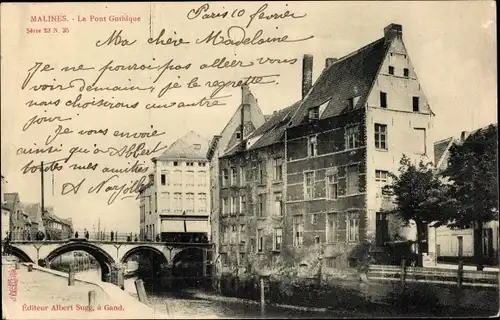 MALINES. - Le Pont Gothique
Série 23 N. 25
Paris 10 févr
Ma chère Madelaine
Je ne pourrais pas aller vous
voir demain, je le regrette
nous choisirons un autre
jour.
Je vous envoie
ainsi qu'a Albert
toutes mes amitiés
Éditeur Albert Sugg, à Gand